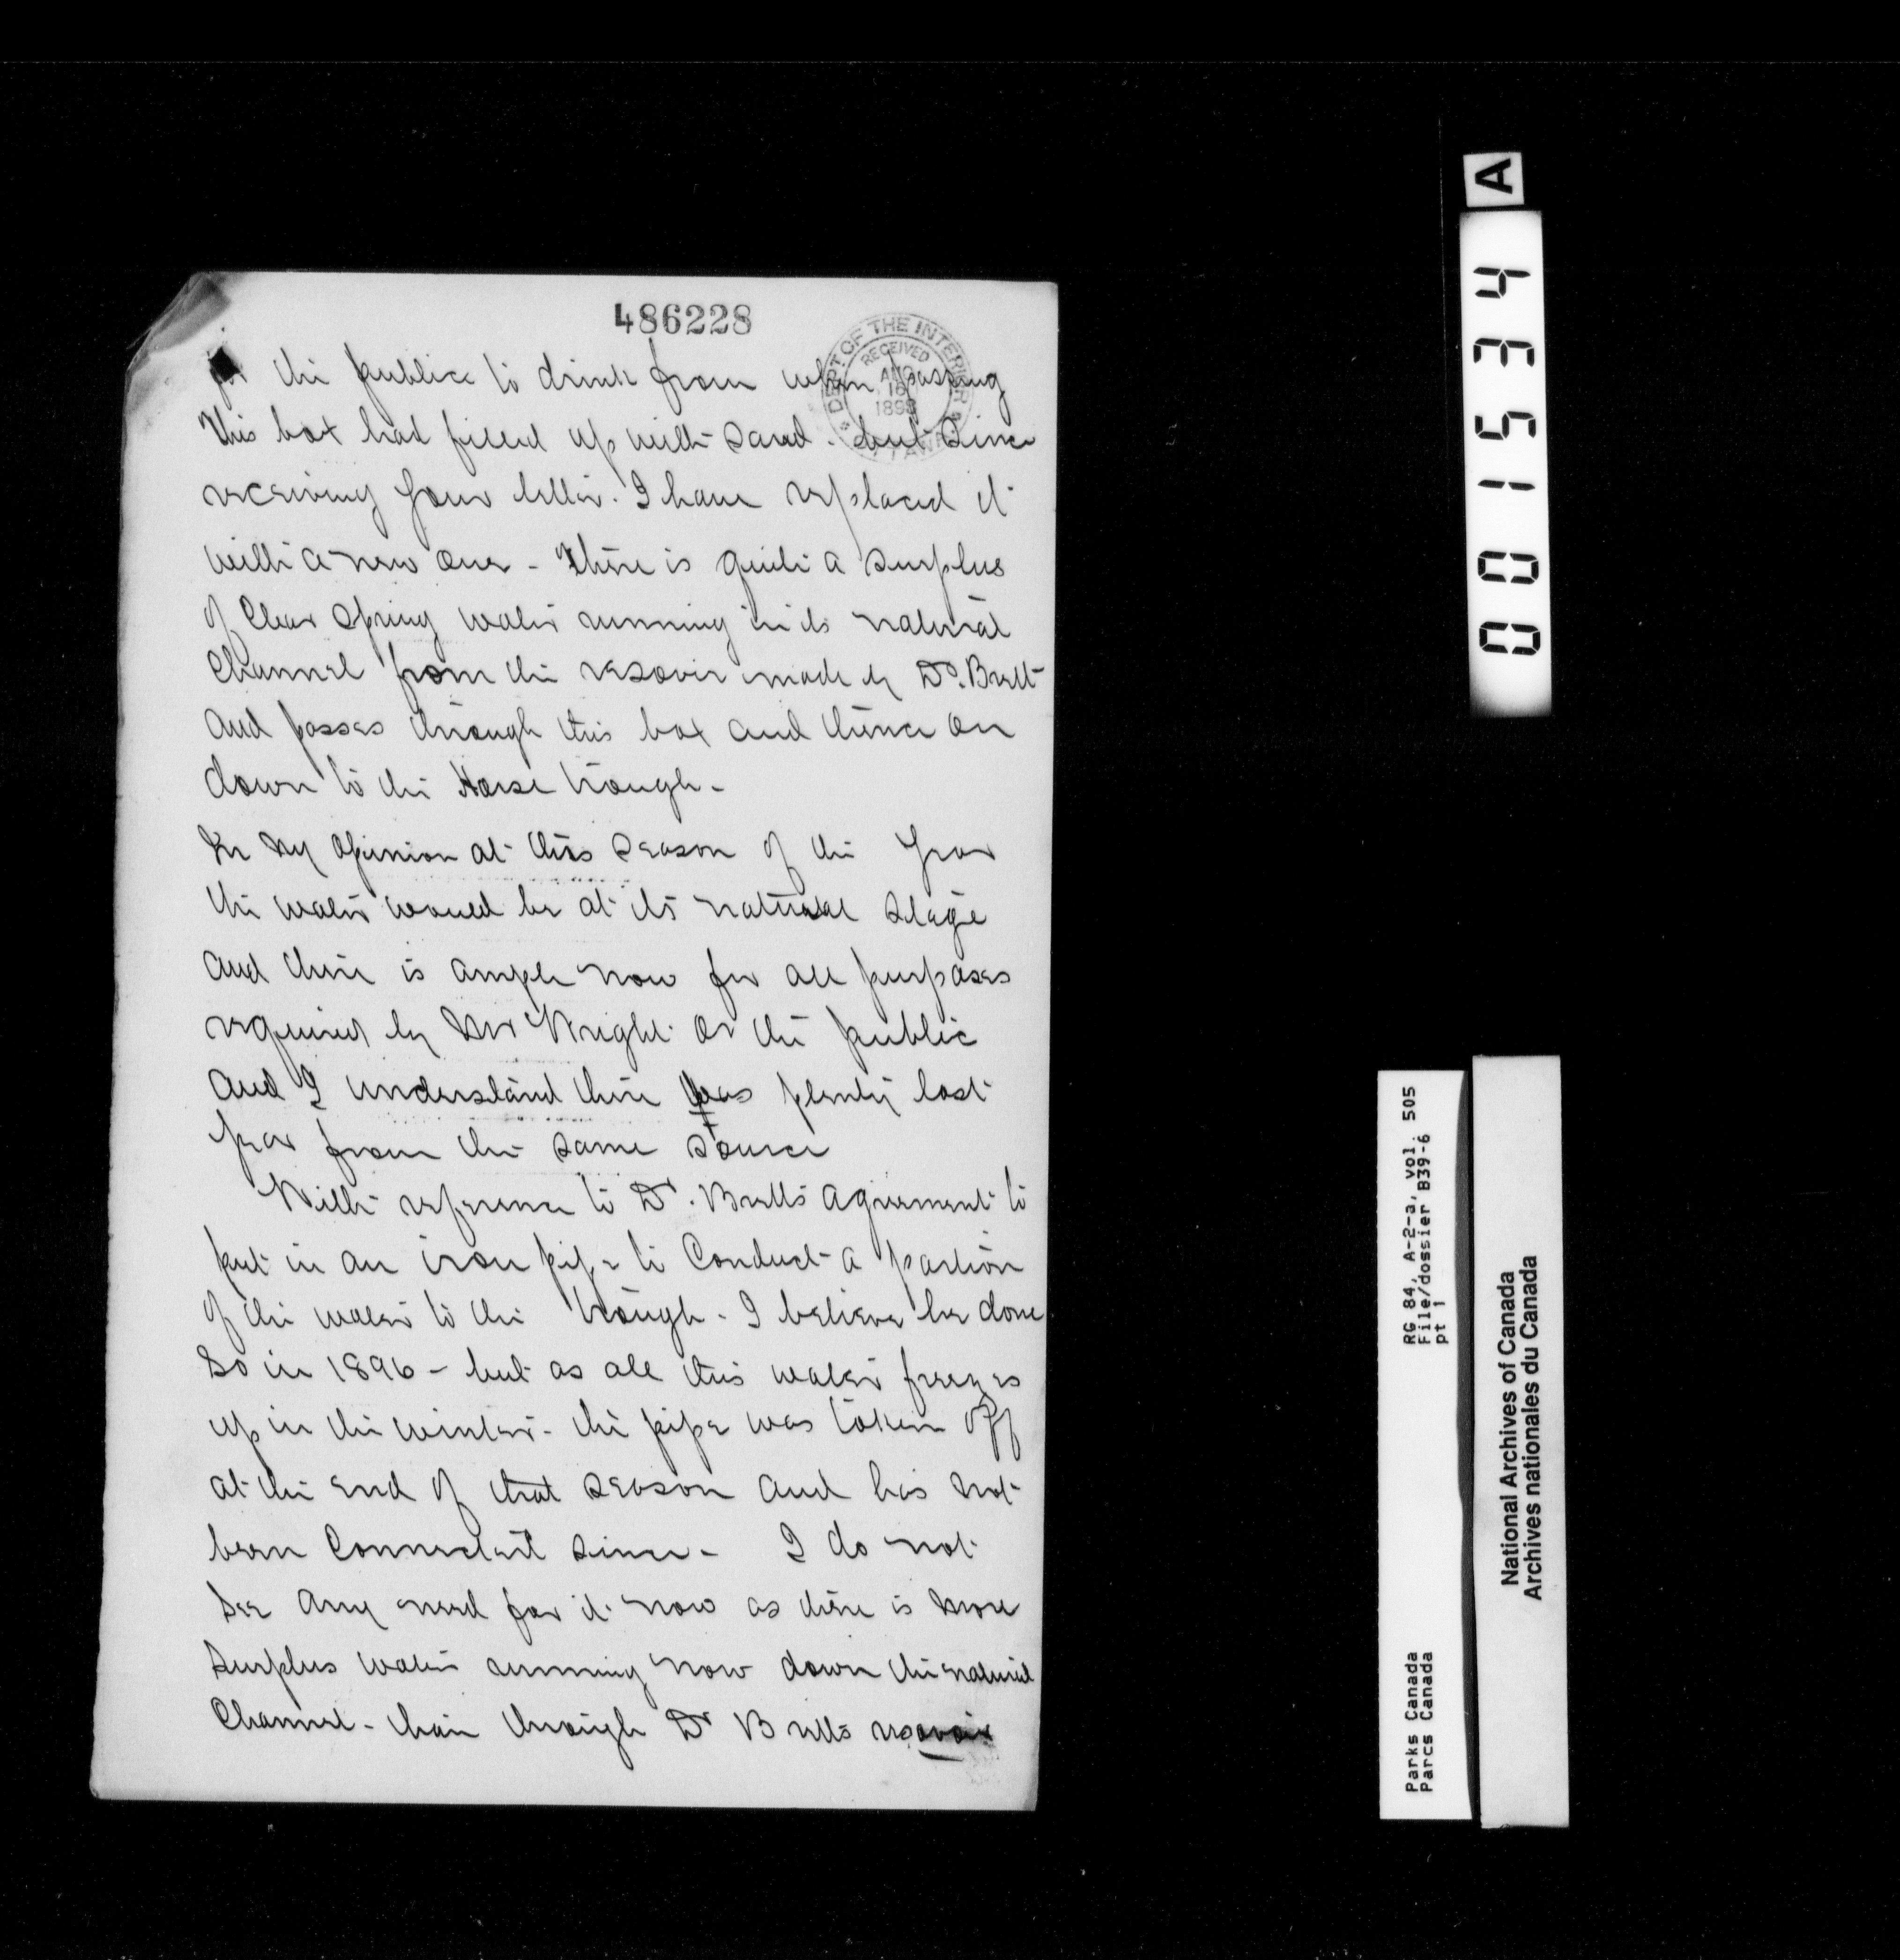 486228
DEPT OF THE INTERIOR
RECEIVED
AUG
16
1898
for the public to drink from when passing
This box had filled up with sand - but since
receiving your letter. I have replaced it
with a new one - There is quite a surplus
of Clear Spring water running in its natural
Channel from the resavoir made by Dr. Brett
and passes through this box and thence on
down to the Horse trough -
In my opinion at this season of the year
the water would be at its natural stage
and there is ample now for all purposes
required by Mr Wright or the public
and I understand there was plenty last
year from the same source
With reference to Dr. Bretts agreement to
put in an iron pipe to Conduct a portion
of the water to the trough - I believe he done
so in 1896 - but as all this water freezes
up in the winter - the pipe was taken off
at the end of that season and has not
been Connected since - I do not
see any need for it now as there is more
surplus water running now down the natural
Channel - than through Dr Bretts resavoir
A
0 0 1 5 3 4
RG 84, A-2-a, vol. 505
File/dossier B39-6
pt 1
Parks Canada
Parcs Canada
National Archives of Canada
Archives nationales du Canada